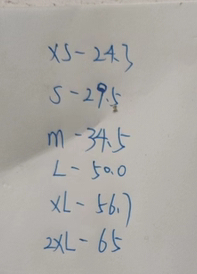 XS-24.3
S-29.5
m-34.5
L-50.0
XL-56.7
2XL-65